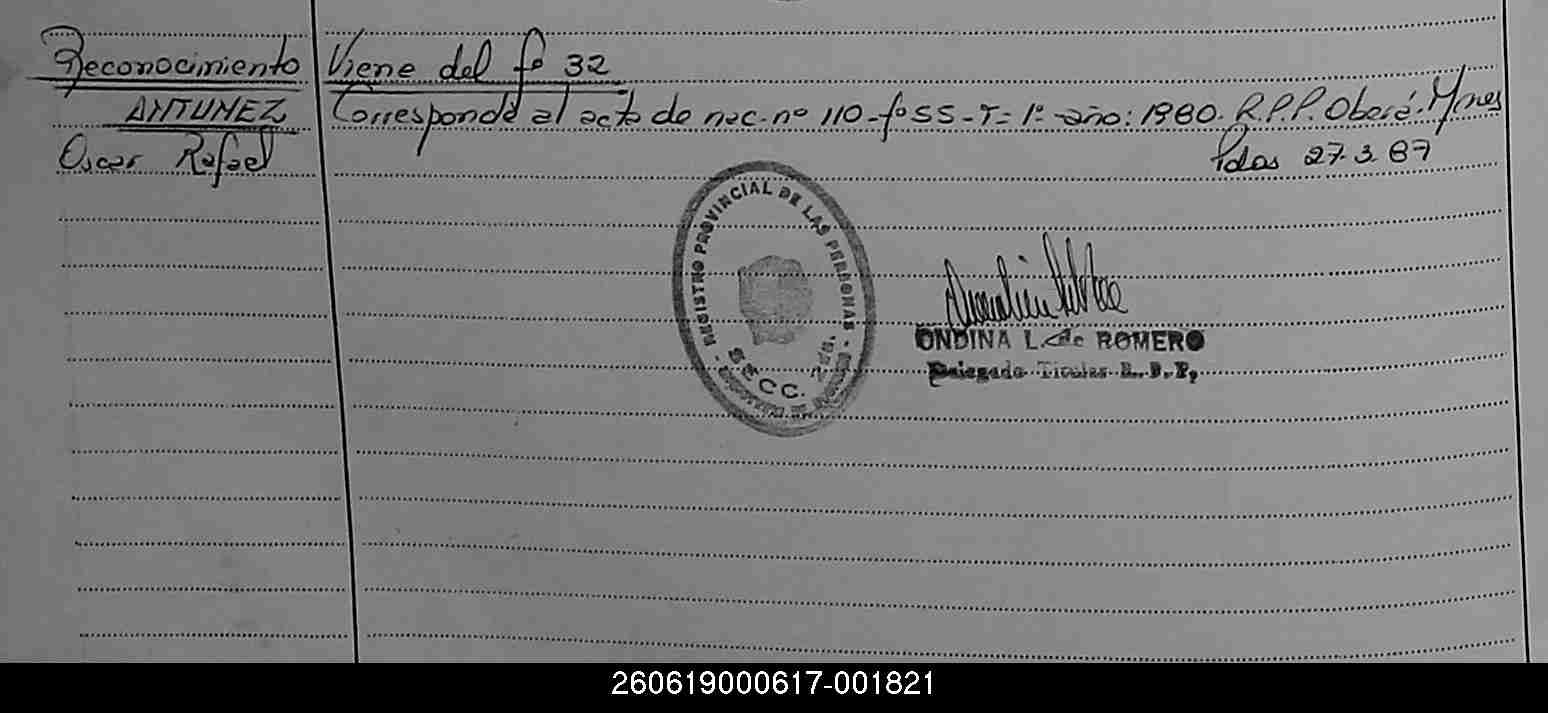 Reconocimiento
ANTUNEZ
Oscar Rafael
Viene del fº 32
Corresponde al acta de nac. nº 110 - fº 55 - T= 1º - año: 1980. R.P.P. Oberá. Mnes
Pdas 27.3.87
REGISTRO PROVINCIAL DE LAS PERSONAS
SECC.
ONDINA L. de ROMERO
Delegado Titular R. P. P.
260619000617-001821